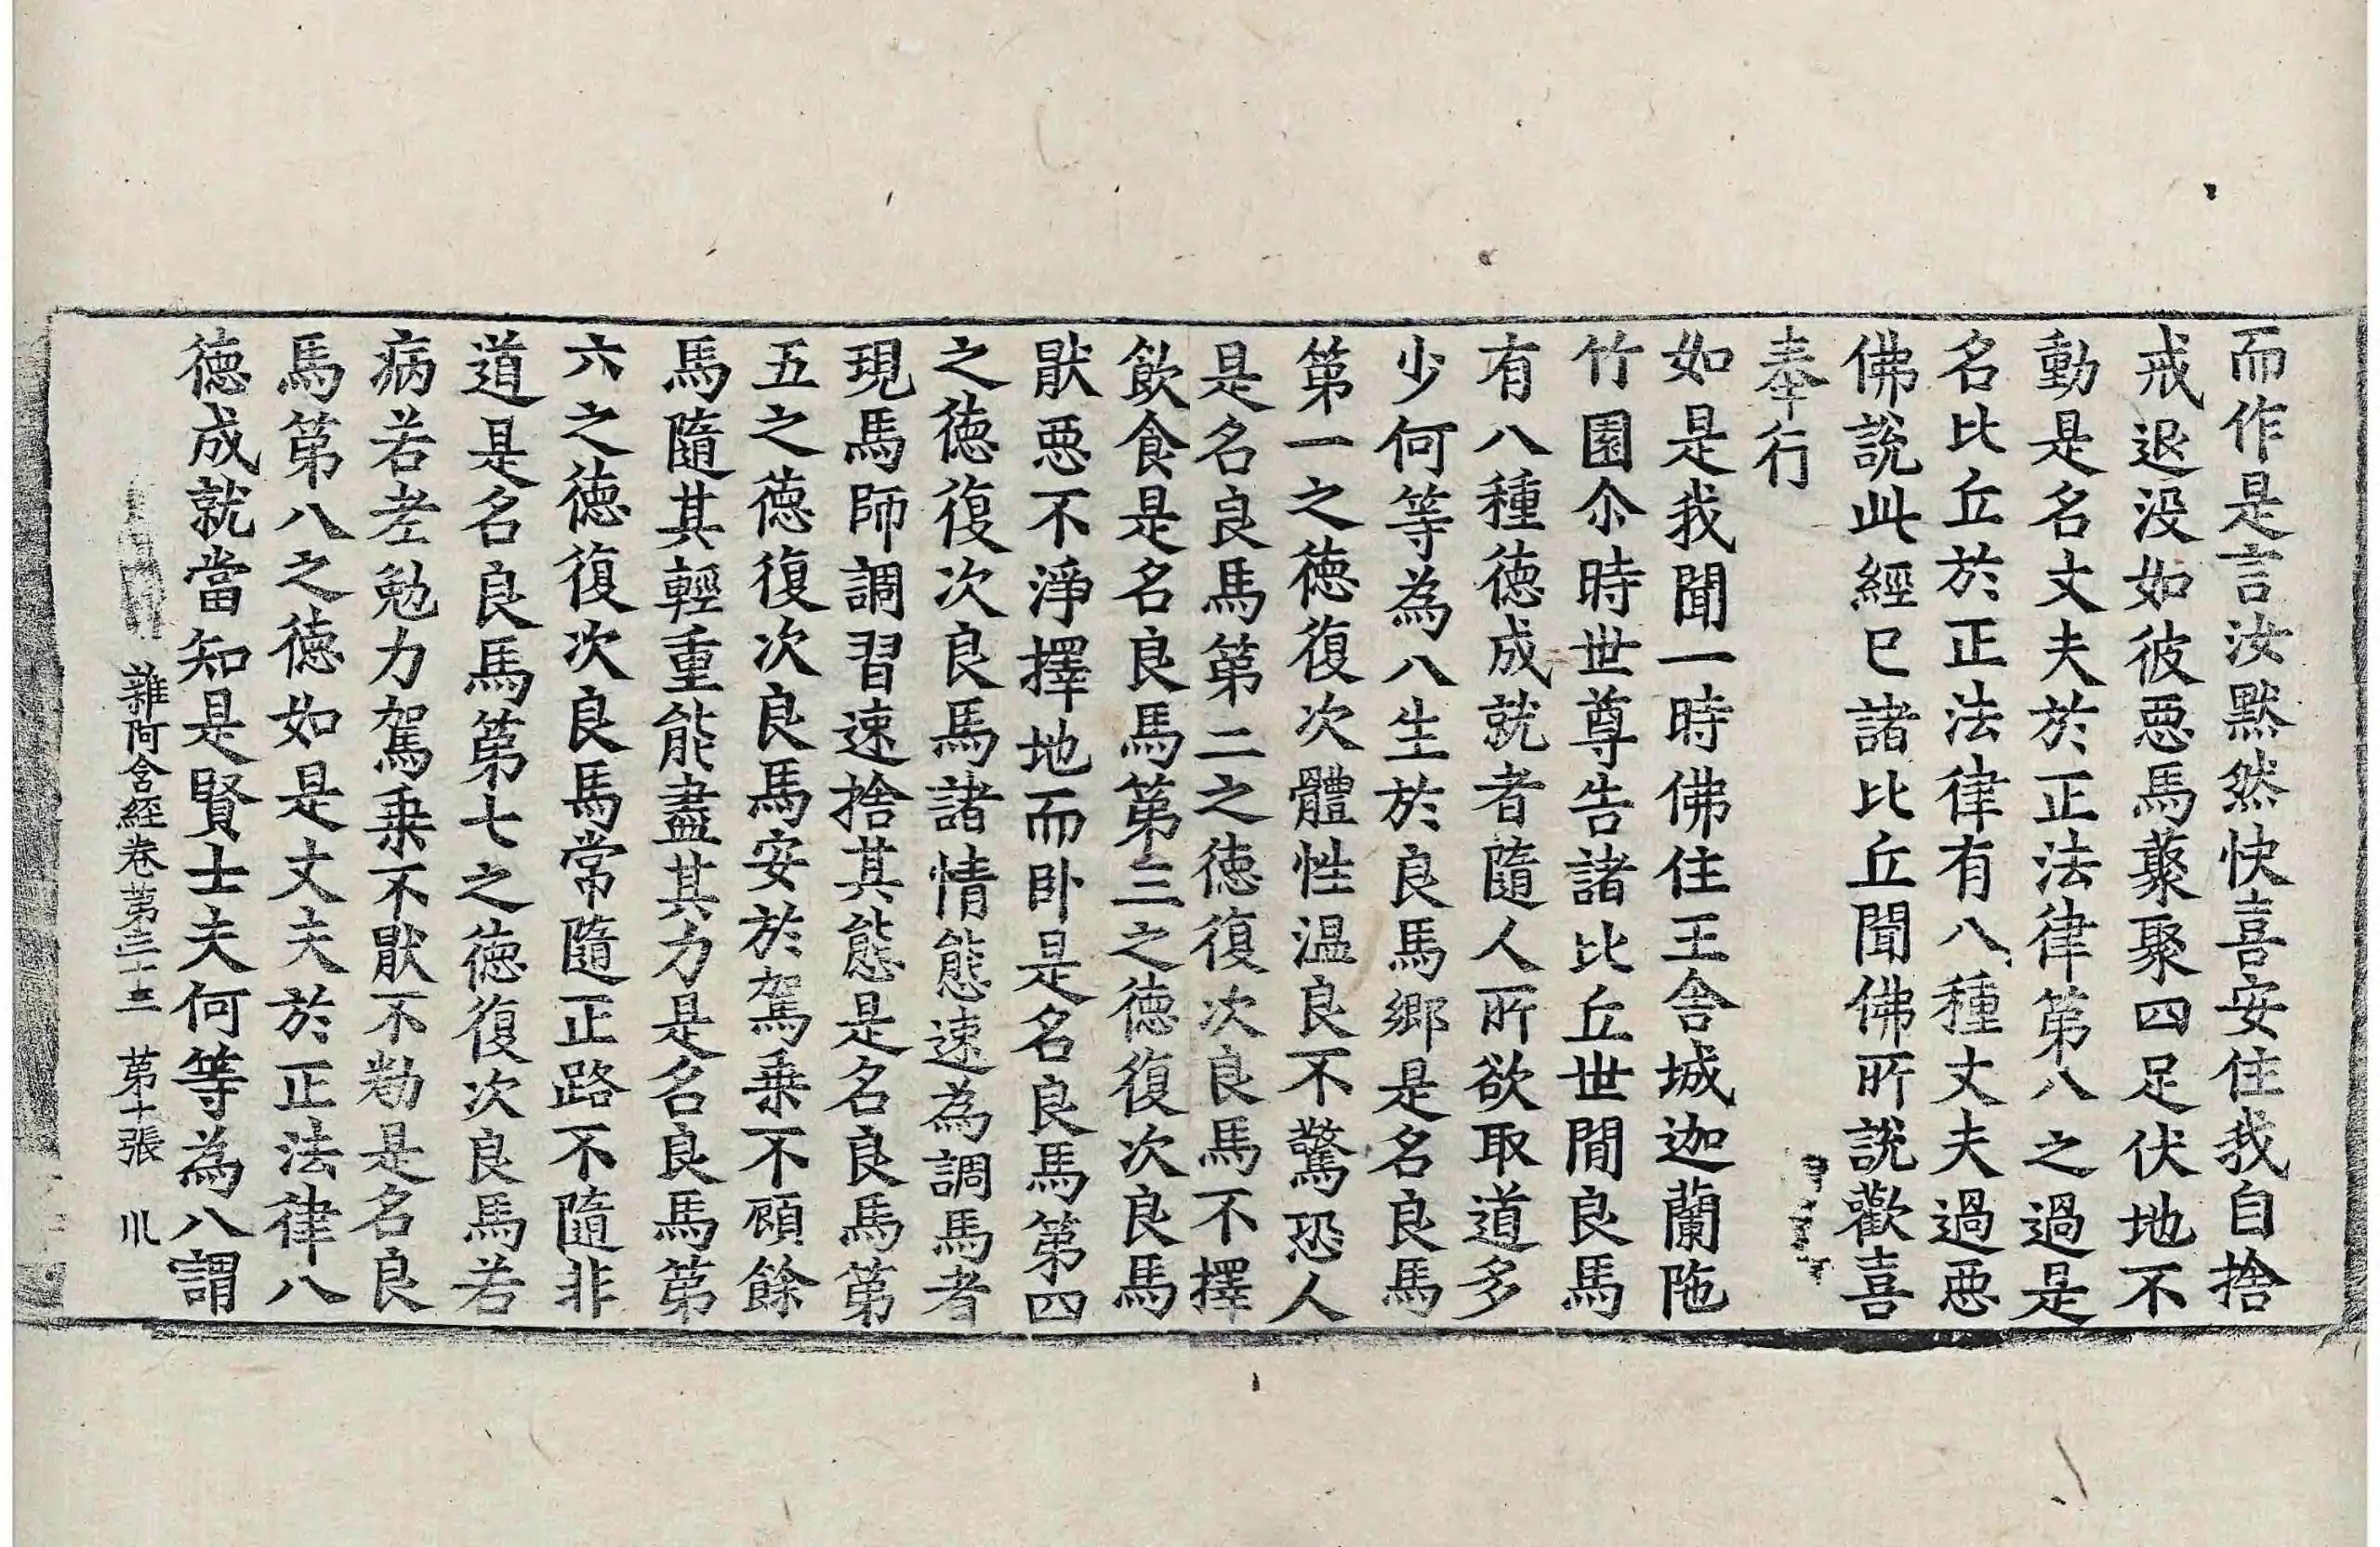 而作是言汝黙然快喜安住我自捨
戒退没如彼惡馬藂聚四足伏地不
動是名丈夫於正法律第八之過是
名比丘於正法律有八種丈夫過惡
佛說此經已諸比丘聞佛所說歡喜
奉行
如是我聞一時佛住王舍城迦蘭陁
竹園尒時世尊告諸比丘世間良馬
有八種德成就者隨人所欲取道多
少何等為八生於良馬鄉是名良馬
第一之德復次體性温良不驚恐人
是名良馬第二之德復次良馬不擇
飲食是名良馬第三之德復次良馬
猒惡不淨擇地而卧是名良馬第四
之德復次良馬諸情態速為調馬者
現馬師調習速捨其態是名良馬第
五之德復次良馬安於駕乗不頋餘
馬隨其輕重能盡其力是名良馬第
六之德復次良馬常隨正路不隨非
道是名良馬第七之德復次良馬若
病若老勉力駕乗不猒不勌是名良
馬第八之德如是丈夫於正法律八
德成就當知是賢士夫何等為八謂
雜阿含經卷第三十三 第十張 川